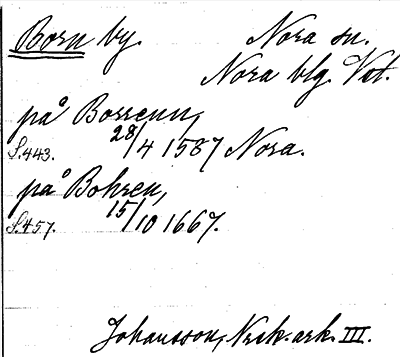 Born by. Nora sn.
Nora blg. Vstl.
på Borrenn,
28/4 1587 Nora.
S. 443.
på Bohren,
15/10 1667.
S. 457.
Johansson, Nsk. ark. III.